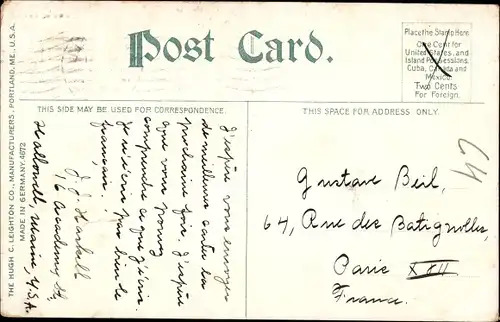 Post Card.
Place the Stamp Here
One Cent for
United States, and
Island Possessions
Cuba, Canada and
Mexico.
Two Cents
For Foreign.
THIS SIDE MAY BE USED FOR CORRESPONDENCE.
THIS SPACE FOR ADDRESS ONLY.
THE HUGH C. LEIGHTON CO., MANUFACTURERS, PORTLAND, ME., U.S.A.
MADE IN GERMANY. 4672
J'espère vous envoyer
de meilleure cartes la
prochaine fois. J'espère
que vous pouvez
comprendre ce que j'écri.
je n'écris pas bien le
francais.
J. J. Haskell
16 Academy St.,
Hallowell, Maine, U.S.A.
64
Gustave Beil,
64, Rue des Batignolles,
Paris XVII
France.